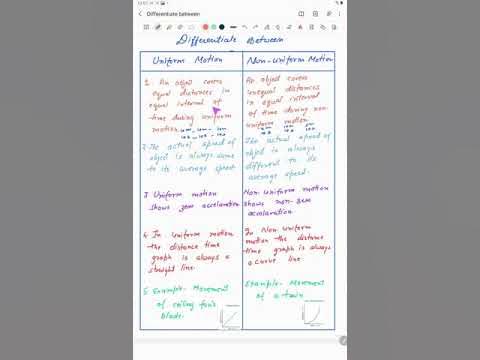 Differentiate between
Differentiate Between
Uniform Motion
Non-Uniform Motion
1. An object covers
equal distances in
equal interval of
time during uniform
motion.
An object covers
unequal distances
in equal interval
of time during non-
uniform motion.
2. The actual speed of
object is always same
to its average speed
The actual speed
of object is always
different to its
average speed.
3 Uniform motion
shows zero acceleration
Non-Uniform motion
shows non-zero
acceleration
4 In uniform motion
the distance time
graph is always a
straight line.
In Non Uniform
motion the distance
time graph is always
a curve line.
5 Example- Movement
of ceiling fan's
blade.
Example- Movement
of a train